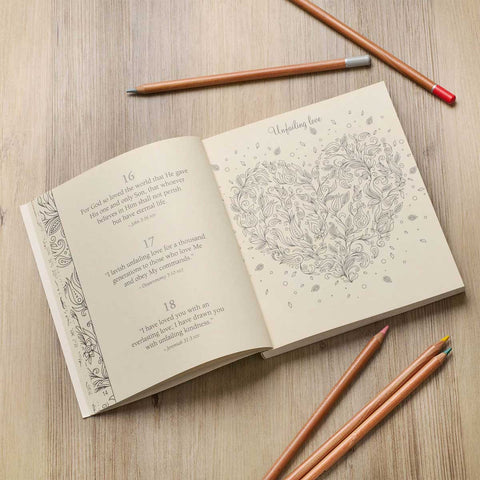 16
For God so loved the world that He gave
His one and only Son, that whoever
believes in Him shall not perish
but have eternal life.
~ John 3:16 NIV
17
"I lavish unfailing love for a thousand
generations to those who love Me
and obey My commands."
~ Deuteronomy 5:10 NLT
18
"I have loved you with an
everlasting love; I have drawn you
with unfailing kindness."
~ Jeremiah 31:3 NIV
14
Unfailing love